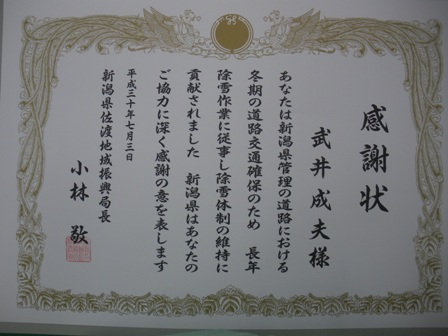 感謝状
武井成夫様
あなたは新潟県管理の道路における
冬期の道路交通確保のため 長年
除雪作業に従事し除雪体制の維持に
貢献されました 新潟県はあなたの
ご協力に深く感謝の意を表します
平成三十年七月三日
新潟県佐渡地域振興局長
小林 敬